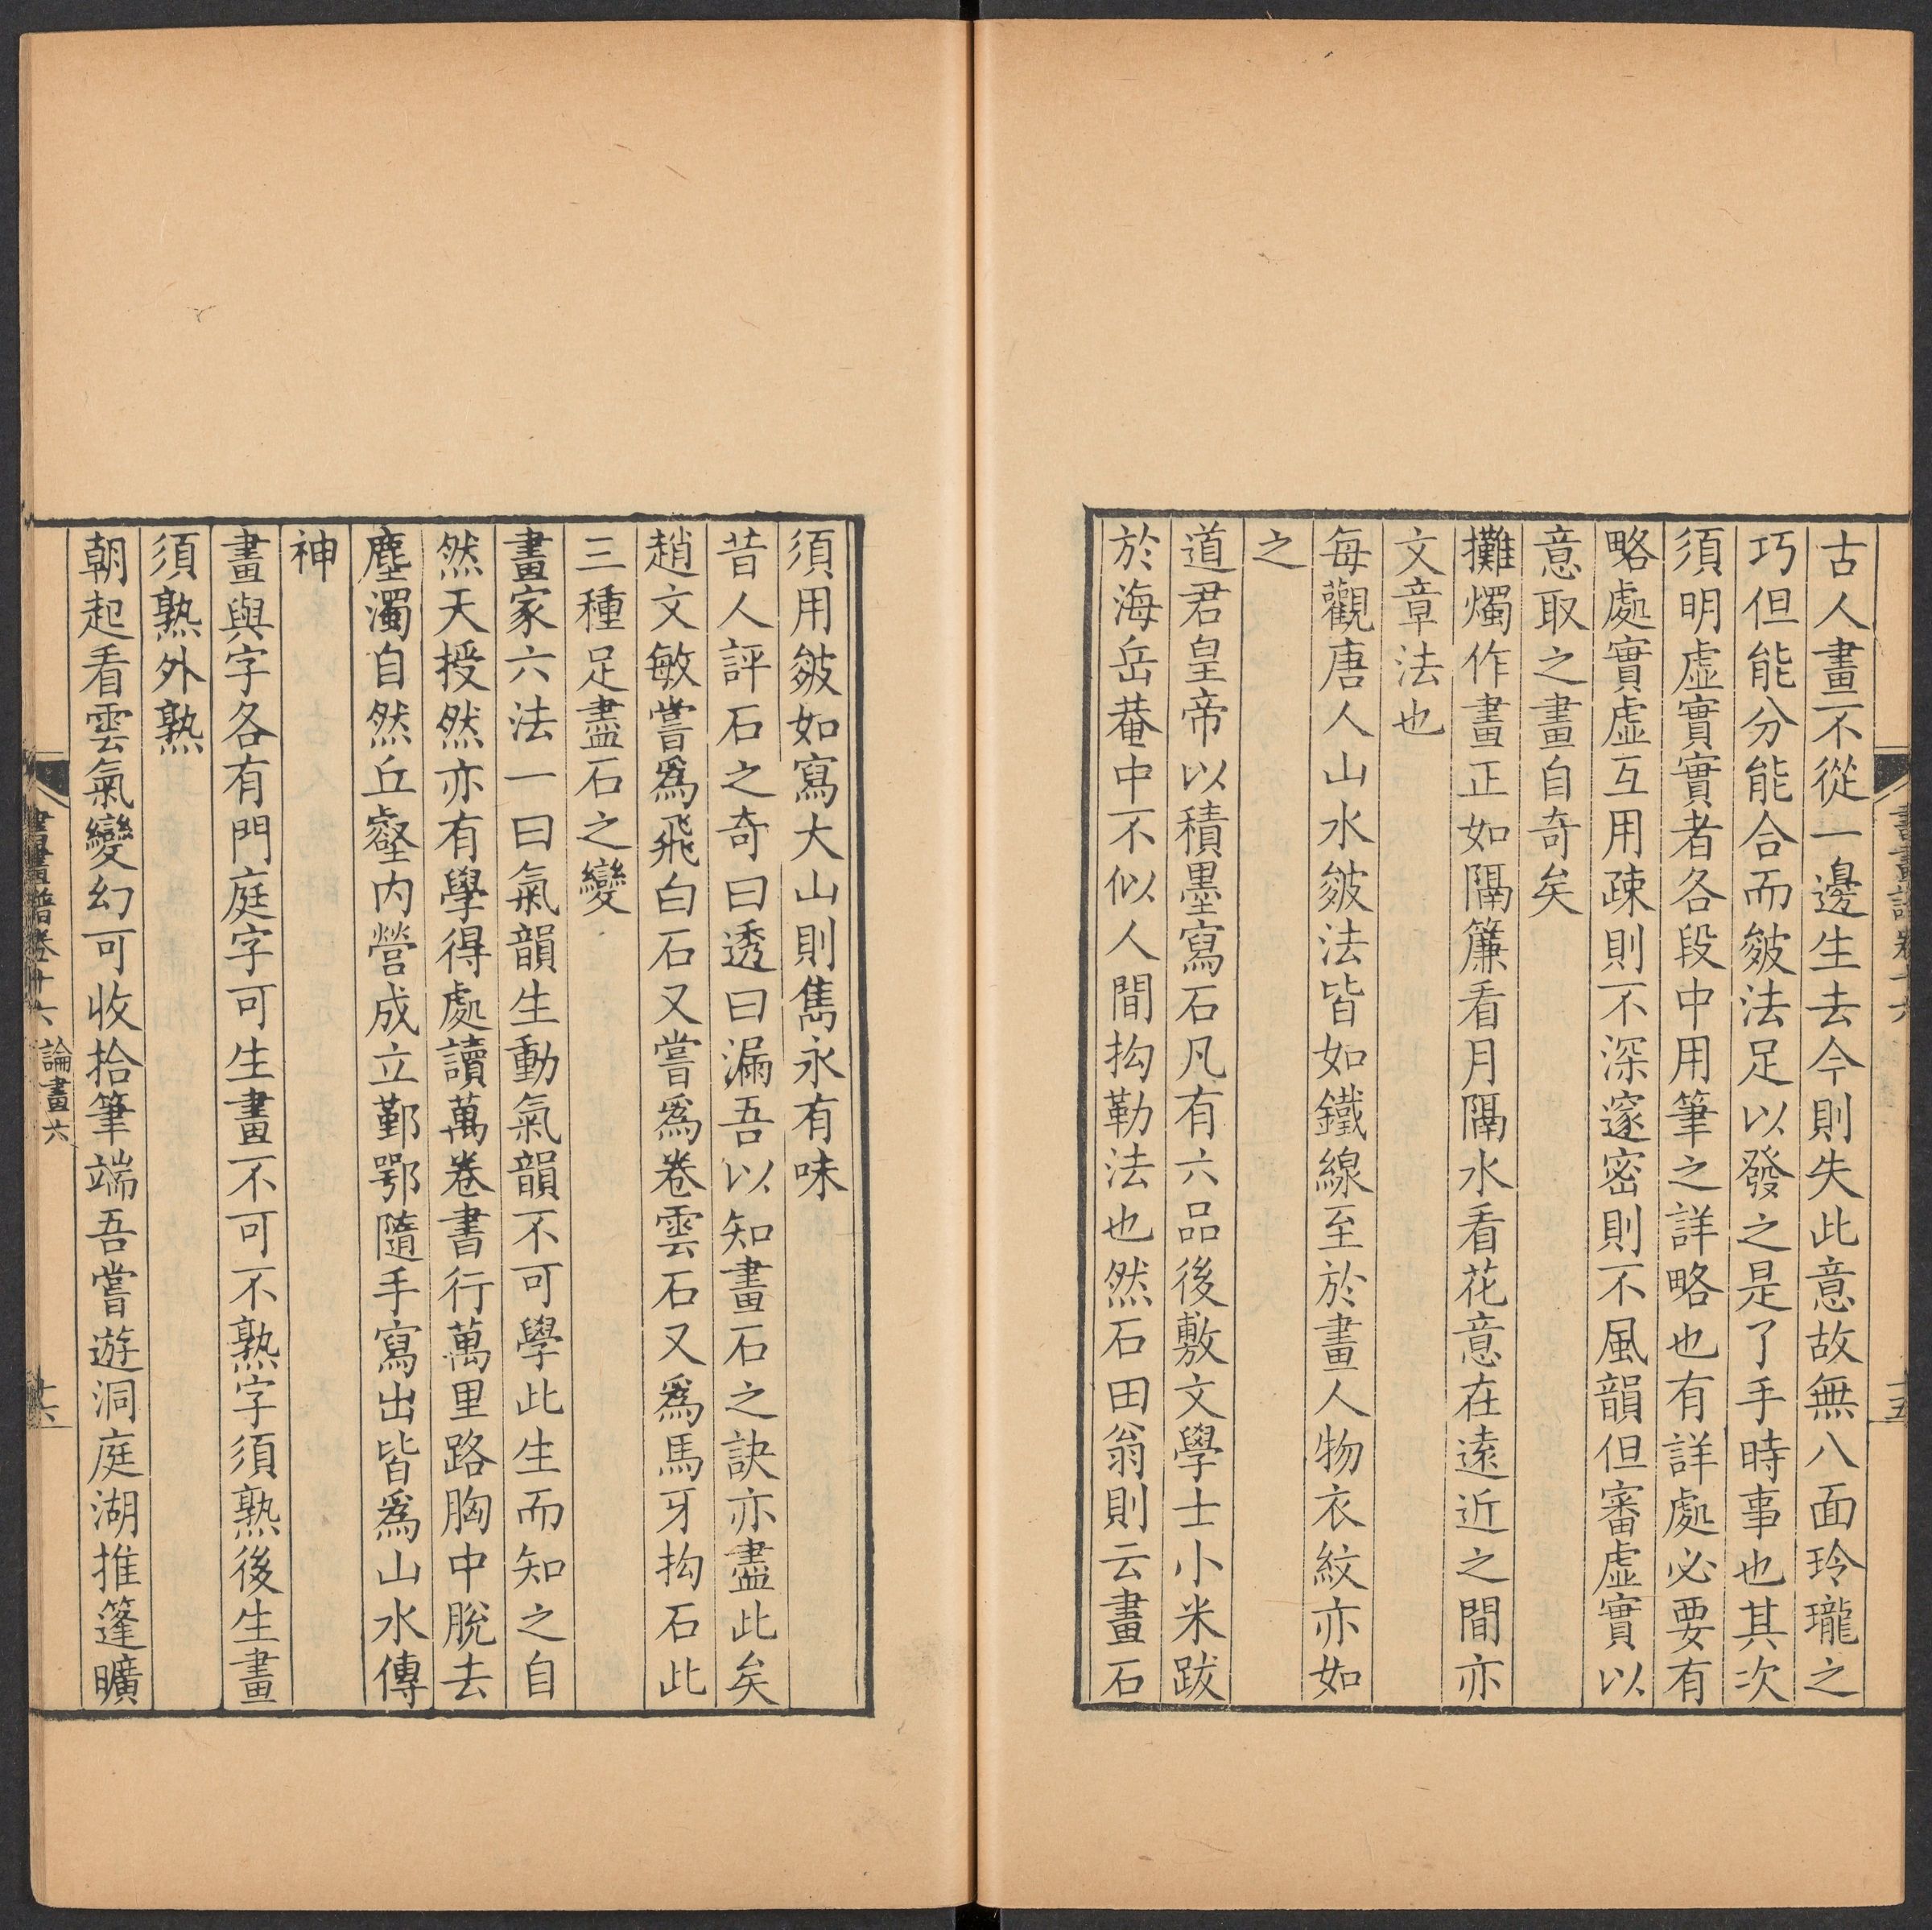 古人畫不從一邊生去今則失此意故無八面玲瓏之
巧但能分能合而皴法足以發之是了手時事也其次
須明虛實實者各段中用筆之詳略也有詳處必要有
略處實虛互用疎則不深邃密則不風韻但審虛實以
意取之畫自奇矣
攤燭作畫正如隔簾看月隔水看花意在遠近之間亦
文章法也
每觀唐人山水皴法皆如鐵線至於畫人物衣紋亦如
之
道君皇帝以積墨寫石凡有六品後敷文學士小米跋
於海岳菴中不似人間抅勒法也然石田翁則云畫石
須用皴如寫大山則雋永有味
昔人評石之奇曰透曰漏吾以知畫石之訣亦盡此矣
趙文敏嘗爲飛白石又嘗爲卷雲石又爲馬牙抅石此
三種足盡石之變
畫家六法一曰氣韻生動氣韻不可學此生而知之自
然天授然亦有學得處讀萬卷書行萬里路胸中脫去
塵濁自然丘壑内營成立鄞鄂隨手寫出皆爲山水傳
神
畫與字各有門庭字可生畫不可不熟字須熟後生畫
須熟外熟
朝起看雲氣變幻可收拾筆端吾嘗遊洞庭湖推篷曠
書畫譜卷十六 論畫六
十六